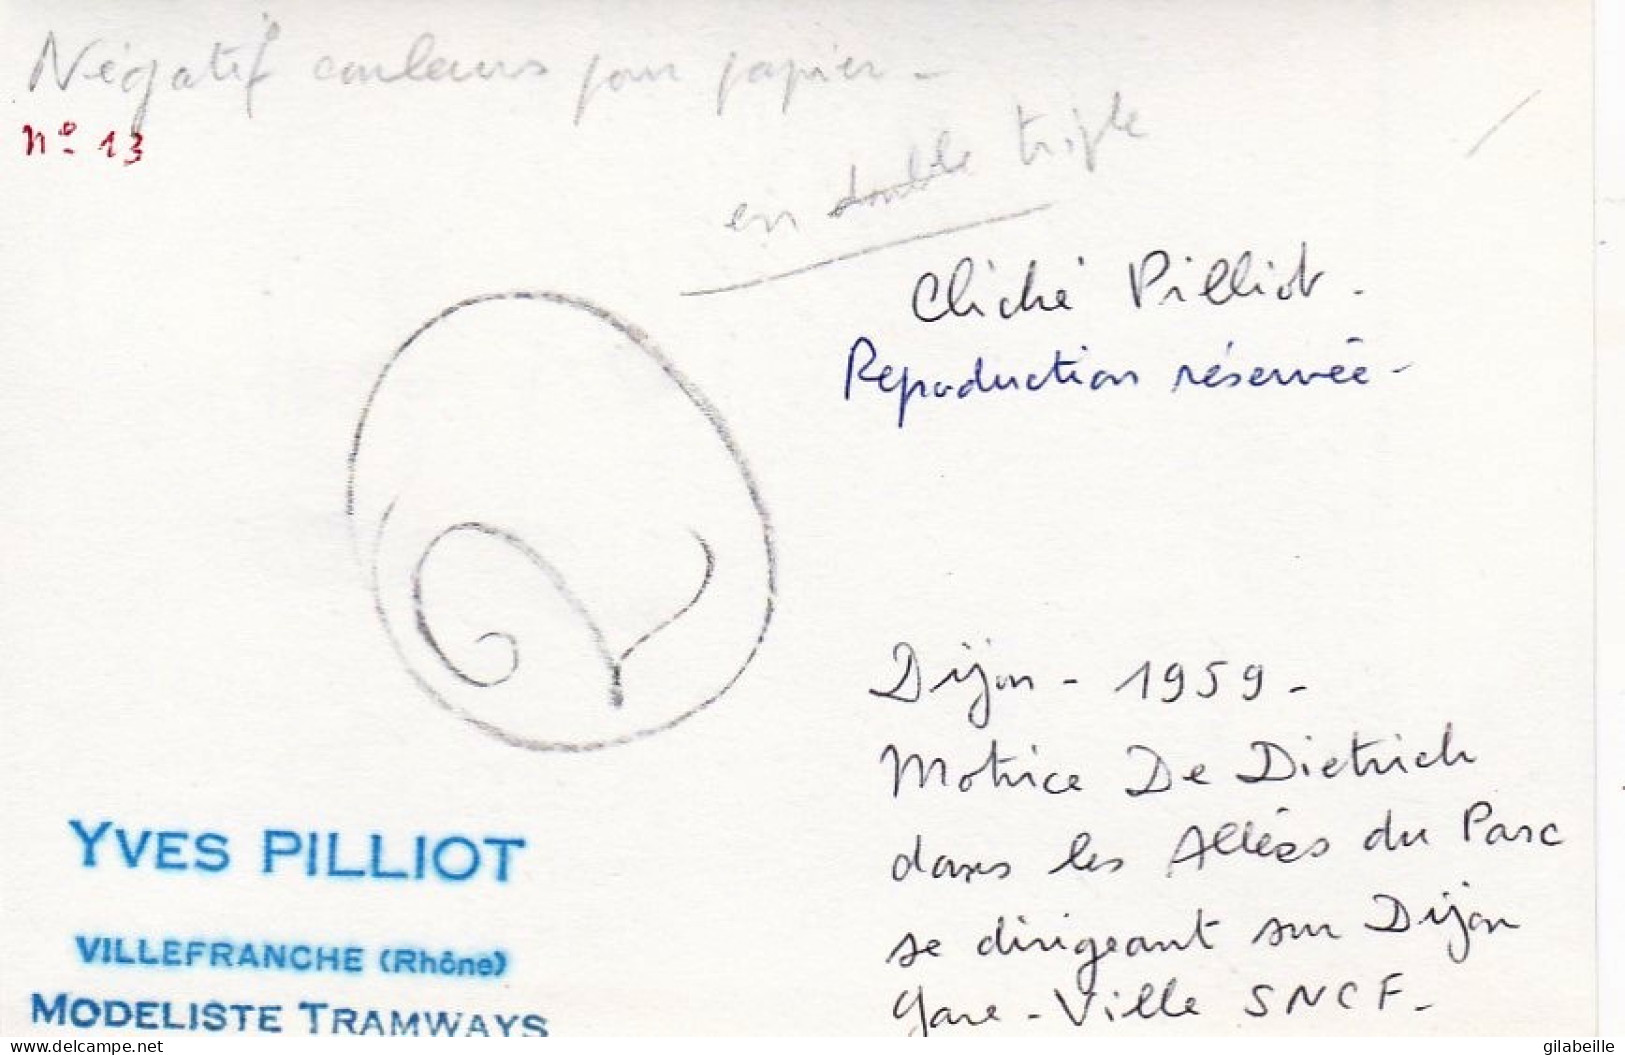 Négatif couleurs pour papier -
n° 13
en double triple
Cliché Pilliot.
Reproduction réservée -
Dijon - 1959 -
Motrice De Dietrich
dans les Allées du Parc
se dirigeant sur Dijon
Gare - Ville SNCF -
YVES PILLIOT
VILLEFRANCHE (Rhône)
MODELISTE TRAMWAYS
www.delcampe.net
gilabeille